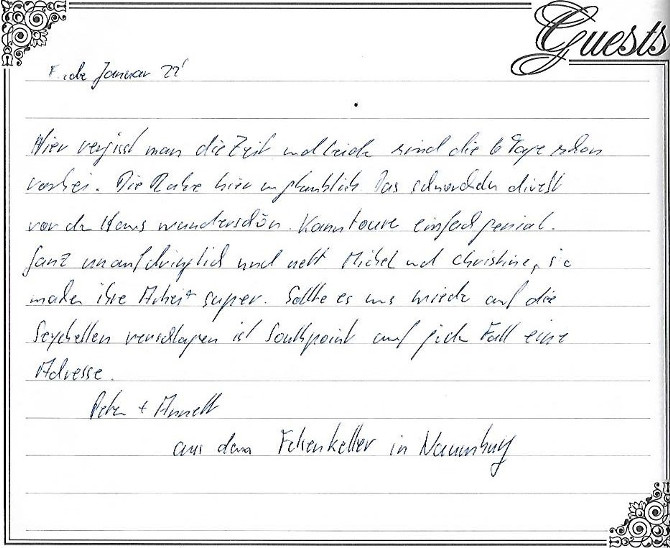 Guests
Ende Januar 22'
Hier vergisst man die Zeit und leider sind die 6 Tage schon
vorbei. Die Ruhe hier unglaublich das schnorcheln direkt
vor dem Haus wunderschön. Kanutour einfach genial.
Ganz unaufdringlich und nett Michel und Christine, sie
machen ihre Arbeit super. Sollte es uns wieder auf die
Seychellen verschlagen ist Southpoint auf jeden Fall eine
Adresse.
Peter + Annett
aus dem Felsenkeller in Naumburg